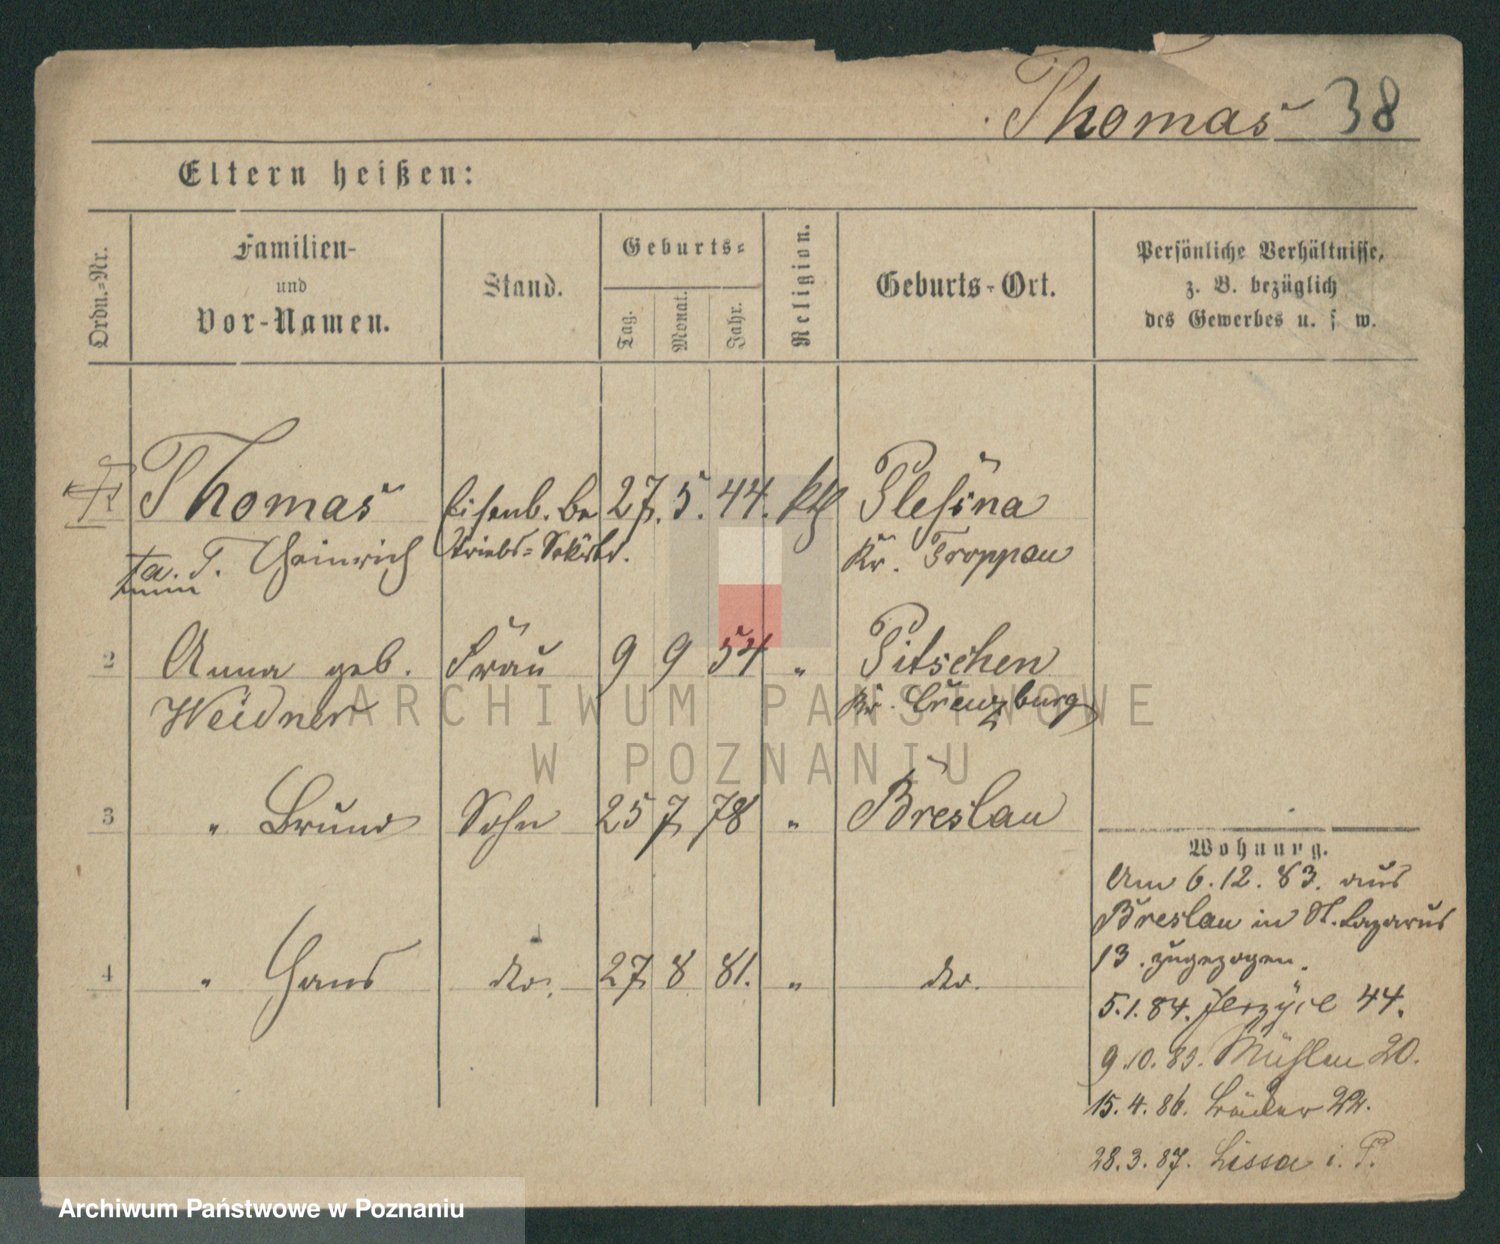 Thomas 38
Eltern heißen:
Ordn.-Nr.
Familien-
und
Vor-Namen.
Stand.
Geburts-
Tag.
Monat.
Jahr.
Religion.
Geburts-Ort.
Persönliche Verhältnisse,
z. B. bezüglich
des Gewerbes u. s. w.
Thomas Eisenb. Be 27. 5. 44. kth Plesna
Heinrich triebs-Sekretr. Kr. Troppau
2 Anna geb. Frau 9 9 54 " Pitschen
Weidner Kr. Creuzburg
3 " Bruno Sohn 25 7 78 " Breslau
4 " Hans do. 27 8 81. " do.
Wohnung.
Am 6.12.83. aus
Breslau in St. Lazarus
13. zugezogen.
5.1.84. Jerzyce 44.
9.10.85. Mühlen 20.
15.4.86. 22.
28.3.87. Lissa i. P.
ARCHIWUM PAŃSTWOWE
W POZNANIU
Archiwum Państwowe w Poznaniu